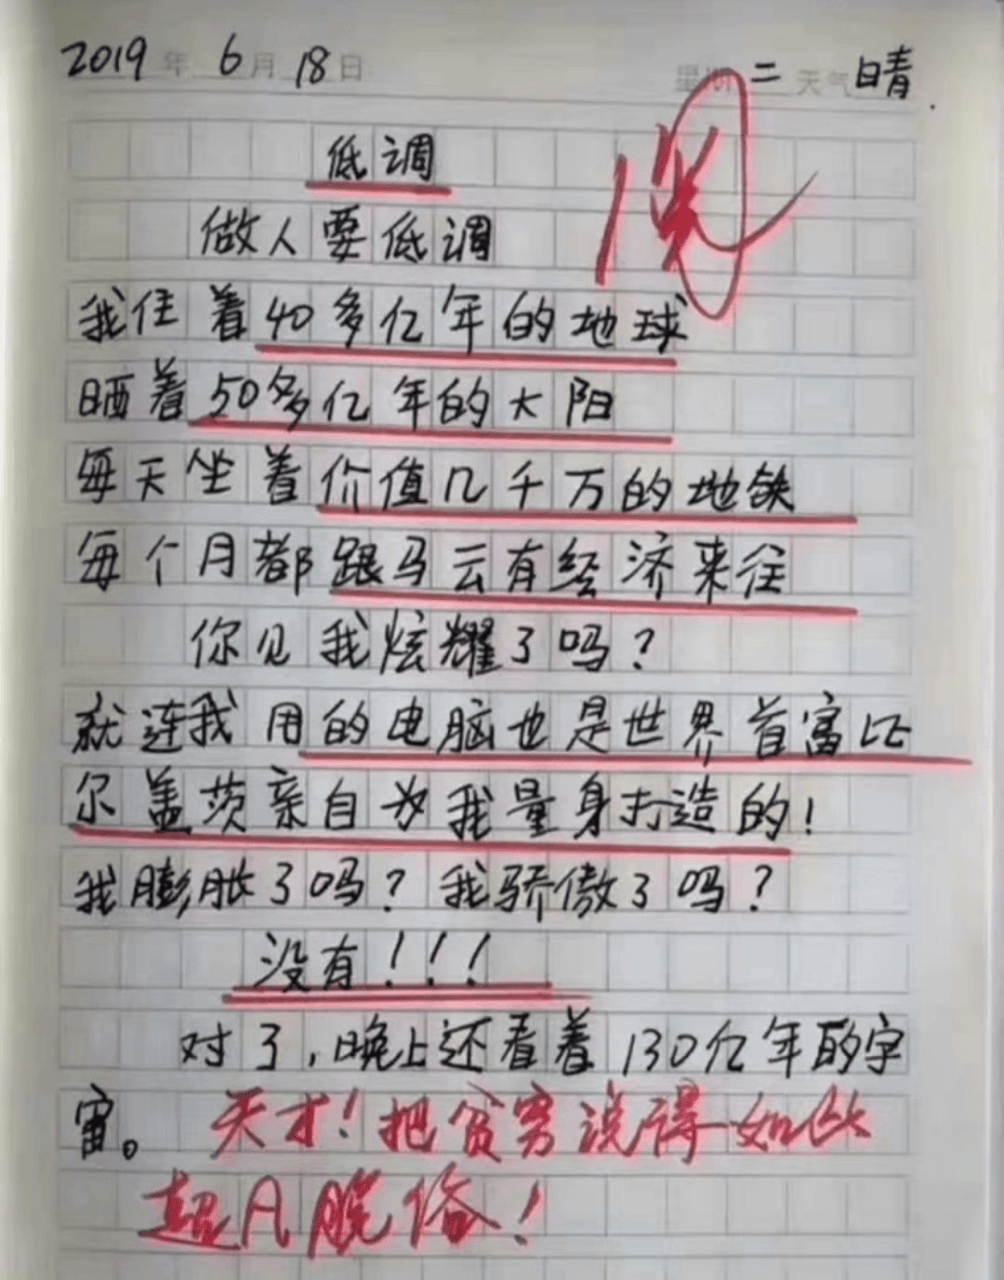 2019年 6月 18日 星期二 天气 晴.
低调
做人要低调
我住着40多亿年的地球
晒着50多亿年的太阳
每天坐着价值几千万的地铁
每个月都跟马云有经济来往
你见我炫耀了吗?
就连我用的电脑也是世界首富比
尔盖茨亲自为我量身打造的!
我膨胀了吗?我骄傲了吗?
没有!!!
对了,晚上还看着130亿年的宇
宙。天才!把贫穷说得如此
超凡脱俗!